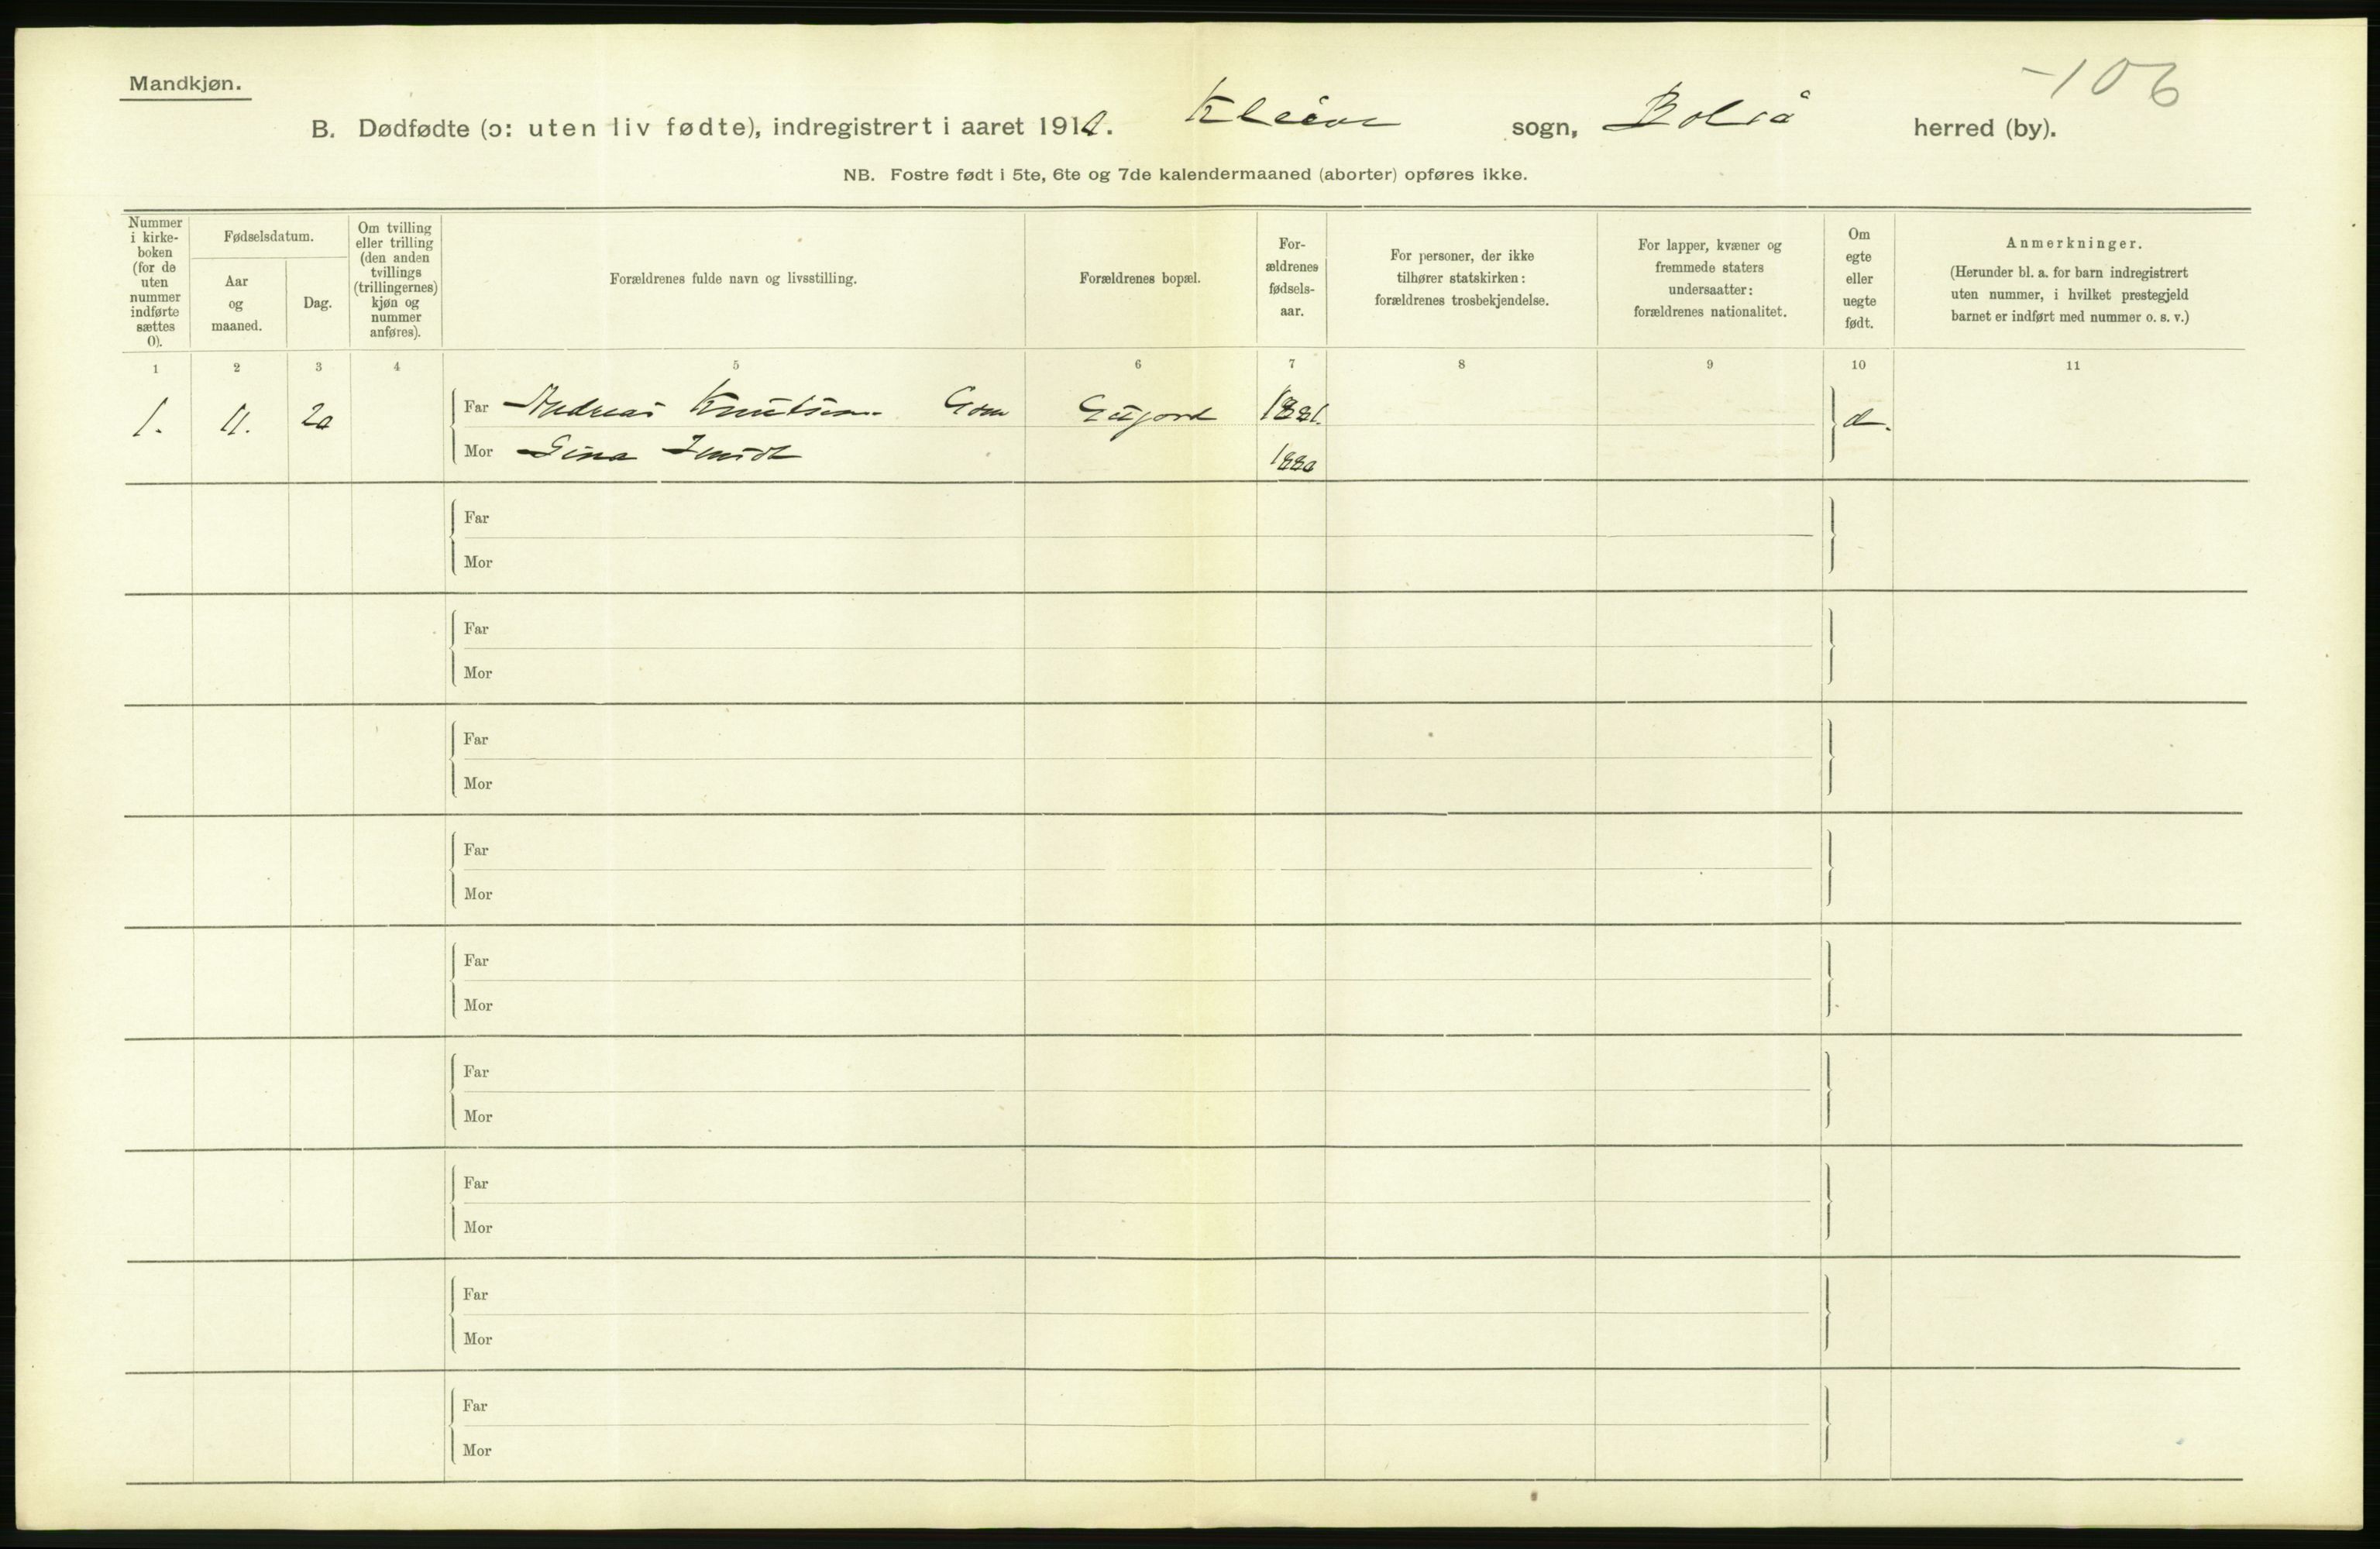 Mandkjøn.
-106
B. Dødfødte (ɔ: uten liv fødte), indregistrert i aaret 191. Kleive sogn, Bolsø herred (by).
NB. Fostre født i 5te, 6te og 7de kalendermaaned (aborter) opføres ikke.
Nummer
i kirke-
boken
(for de
uten
nummer
indførte
sættes
0).
Fødselsdatum.
Aar
og
maaned.
Dag.
Om tvilling
eller trilling
(den anden
tvillings
(trillingernes)
kjøn og
nummer
anføres).
Forældrenes fulde navn og livsstilling.
Forældrenes bopæl.
For-
ældrenes
fødsels-
aar.
For personer, der ikke
tilhører statskirken:
forældrenes trosbekjendelse.
For lapper, kvæner og
fremmede staters
undersaatter:
forældrenes nationalitet.
Om
egte
eller
uegte
født.
Anmerkninger.
(Herunder bl. a. for barn indregistrert
uten nummer, i hvilket prestegjeld
barnet er indført med nummer o. s. v.)
1 2 3 4 5 6 7 8 9 10 11
1. 11. 20 Far Andreas Knutsen 1881.
Mor Gina 1880
Far
Mor
Far
Mor
Far
Mor
Far
Mor
Far
Mor
Far
Mor
Far
Mor
Far
Mor
Far
Mor